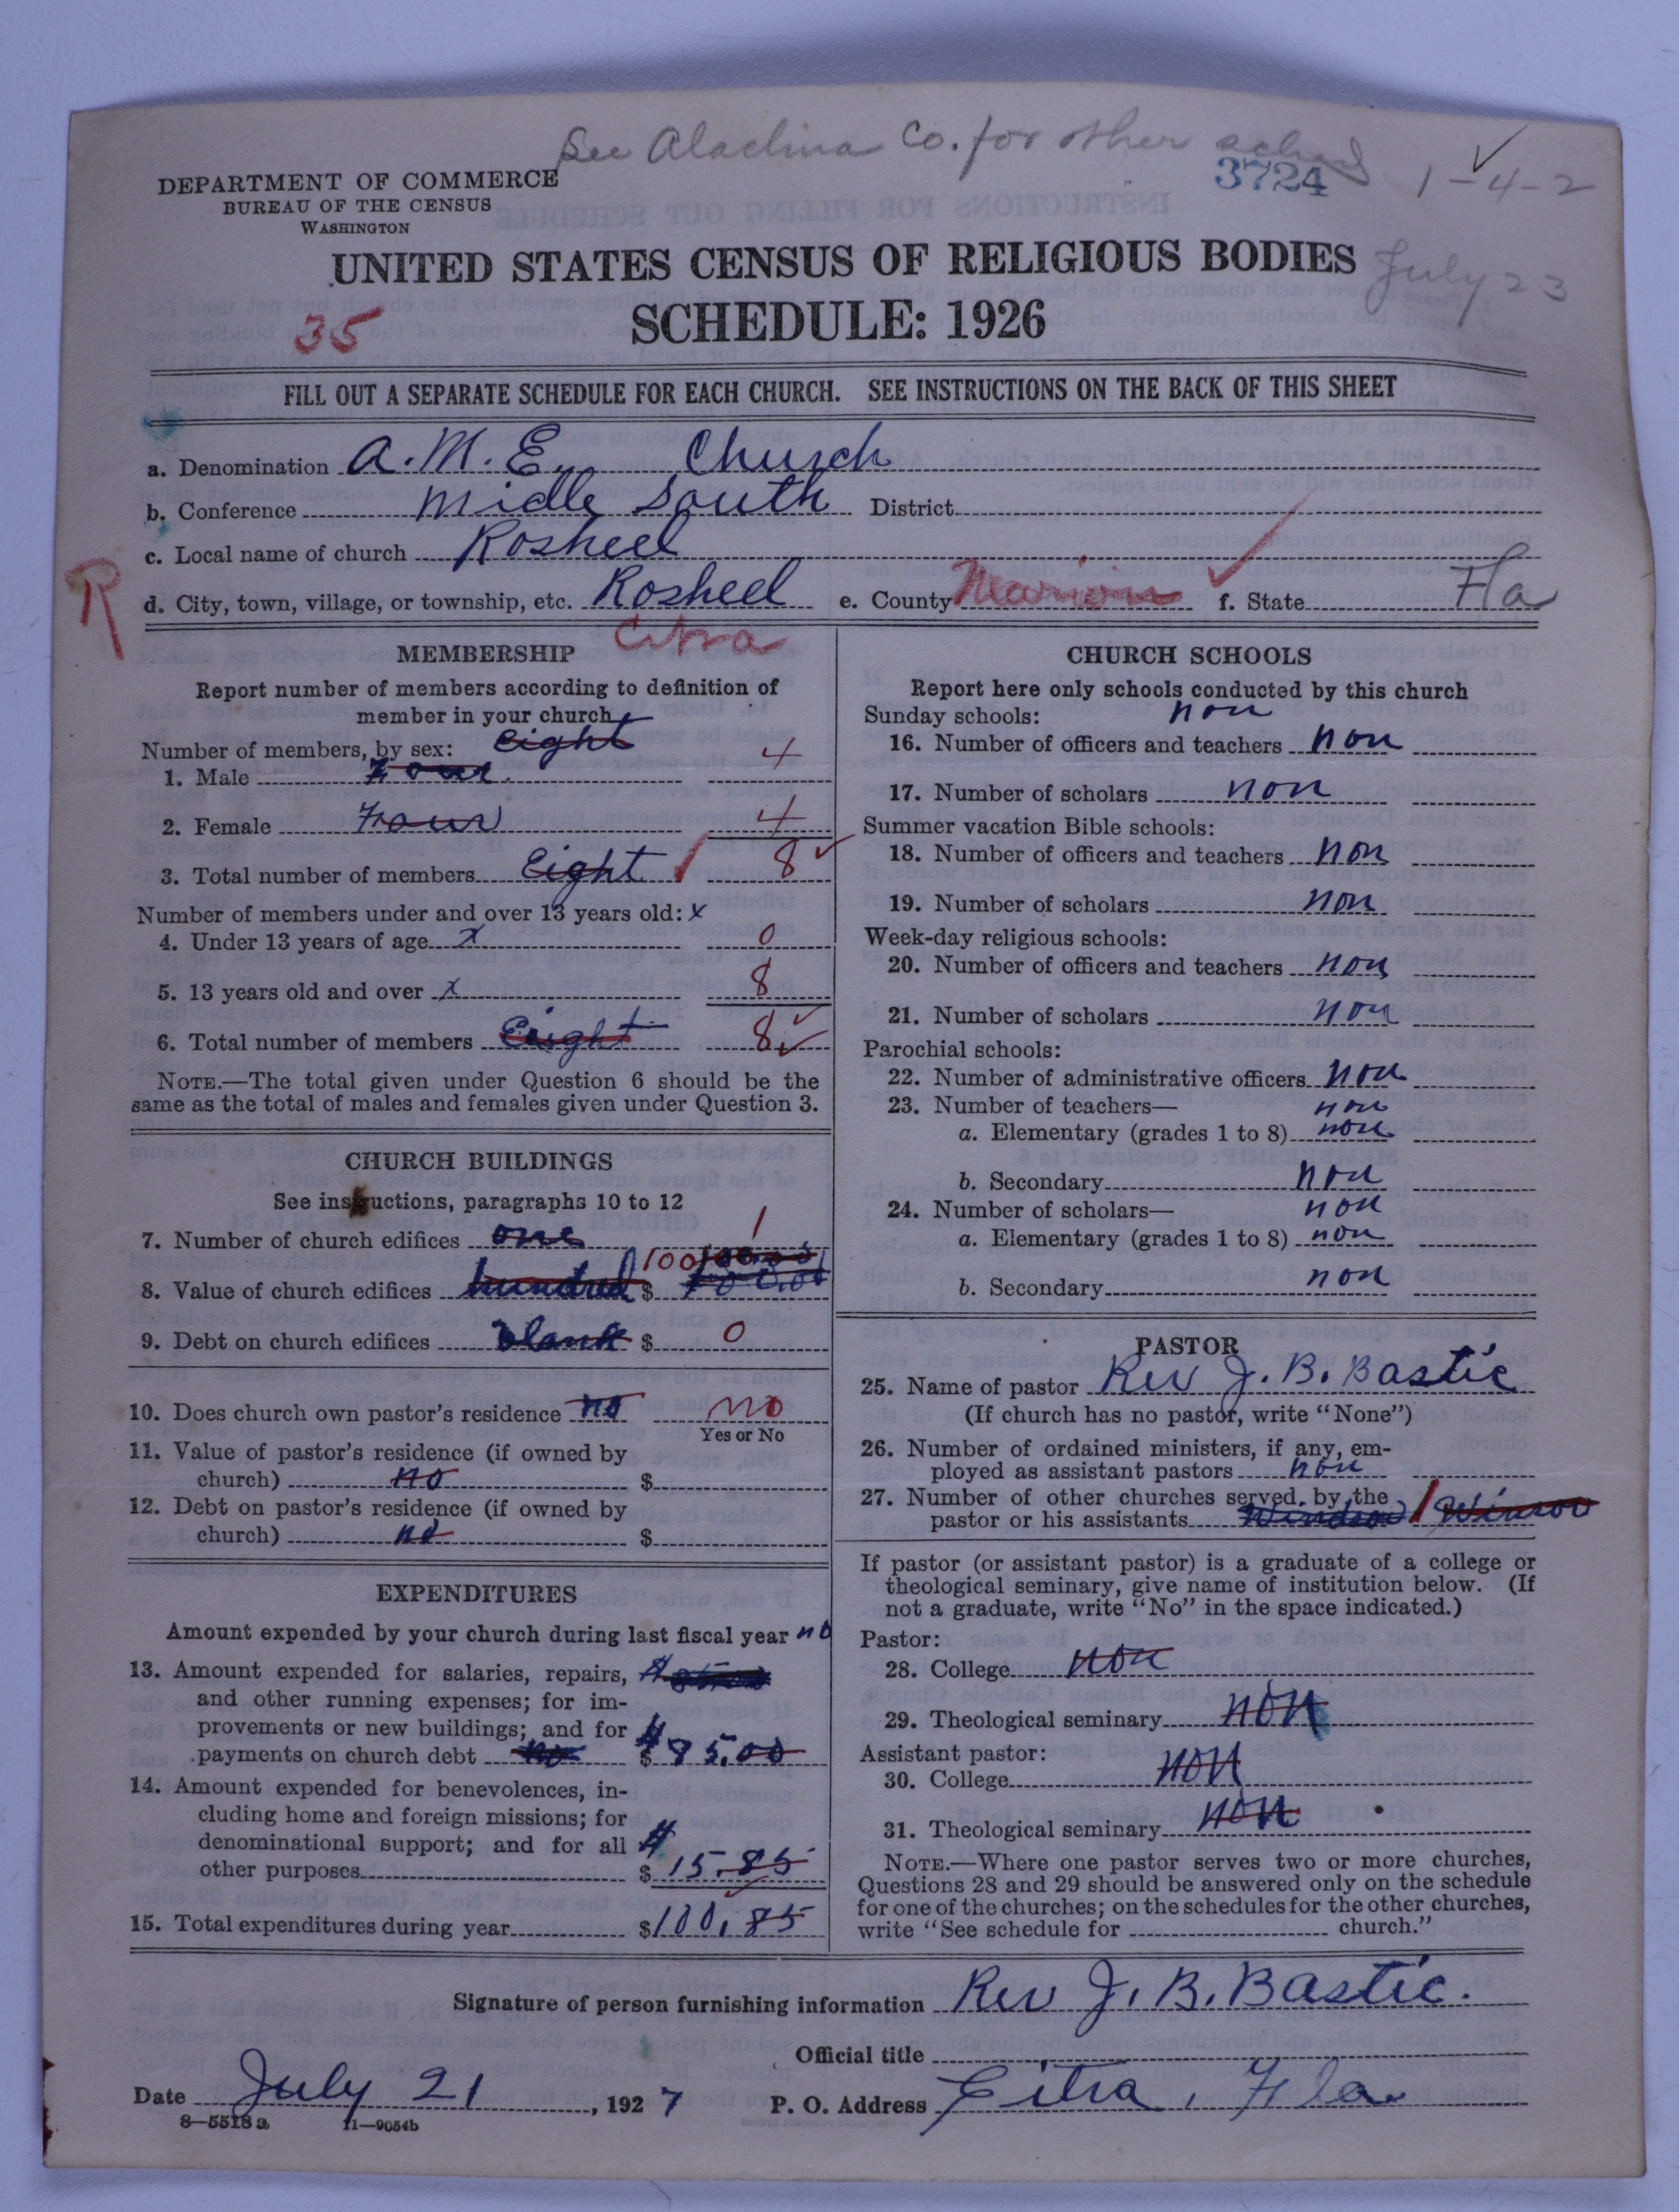 See Alachua Co. for other sched
3724
1-4-2
DEPARTMENT OF COMMERCE
BUREAU OF THE CENSUS
WASHINGTON
UNITED STATES CENSUS OF RELIGIOUS BODIES
July 23
35
SCHEDULE: 1926
FILL OUT A SEPARATE SCHEDULE FOR EACH CHURCH. SEE INSTRUCTIONS ON THE BACK OF THIS SHEET
a. Denomination A. M. E. Church
b. Conference Midle South District
c. Local name of church Rosheel
R
d. City, town, village, or township, etc. Rosheel e. County Marion f. State Fla
Citra
MEMBERSHIP
Report number of members according to definition of
member in your church
Number of members, by sex: Eight
1. Male Four 4
2. Female Four 4
3. Total number of members Eight 8
Number of members under and over 13 years old: x
4. Under 13 years of age x 0
5. 13 years old and over x 8
6. Total number of members Eight 8
NOTE.—The total given under Question 6 should be the
same as the total of males and females given under Question 3.
CHURCH BUILDINGS
See instructions, paragraphs 10 to 12
7. Number of church edifices one 1
100 100.00
8. Value of church edifices hundred $ 100.00
9. Debt on church edifices blank $ 0
10. Does church own pastor's residence no no
Yes or No
11. Value of pastor's residence (if owned by
church) no $
12. Debt on pastor's residence (if owned by
church) no $
EXPENDITURES
Amount expended by your church during last fiscal year no
13. Amount expended for salaries, repairs, $
and other running expenses; for im-
provements or new buildings; and for $
payments on church debt no $ 85.00
14. Amount expended for benevolences, in-
cluding home and foreign missions; for
denominational support; and for all $
other purposes $ 15.85
15. Total expenditures during year $ 100.85
CHURCH SCHOOLS
Report here only schools conducted by this church
Sunday schools: non
16. Number of officers and teachers non
17. Number of scholars non
Summer vacation Bible schools:
18. Number of officers and teachers non
19. Number of scholars non
Week-day religious schools:
20. Number of officers and teachers non
21. Number of scholars non
Parochial schools:
22. Number of administrative officers non
23. Number of teachers— non
a. Elementary (grades 1 to 8) non
b. Secondary non
24. Number of scholars— non
a. Elementary (grades 1 to 8) non
b. Secondary non
PASTOR
25. Name of pastor Rev J. B. Bastic
(If church has no pastor, write "None")
26. Number of ordained ministers, if any, em-
ployed as assistant pastors non
27. Number of other churches served by the
pastor or his assistants Windsor 1 Winsor
If pastor (or assistant pastor) is a graduate of a college or
theological seminary, give name of institution below. (If
not a graduate, write "No" in the space indicated.)
Pastor:
28. College non
29. Theological seminary non
Assistant pastor:
30. College non
31. Theological seminary non
NOTE.—Where one pastor serves two or more churches,
Questions 28 and 29 should be answered only on the schedule
for one of the churches; on the schedules for the other churches,
write "See schedule for church."
Signature of person furnishing information Rev J. B. Bastic.
Official title
Date July 21, 1927 P. O. Address Citra, Fla.
8—5518 a 11—9054b